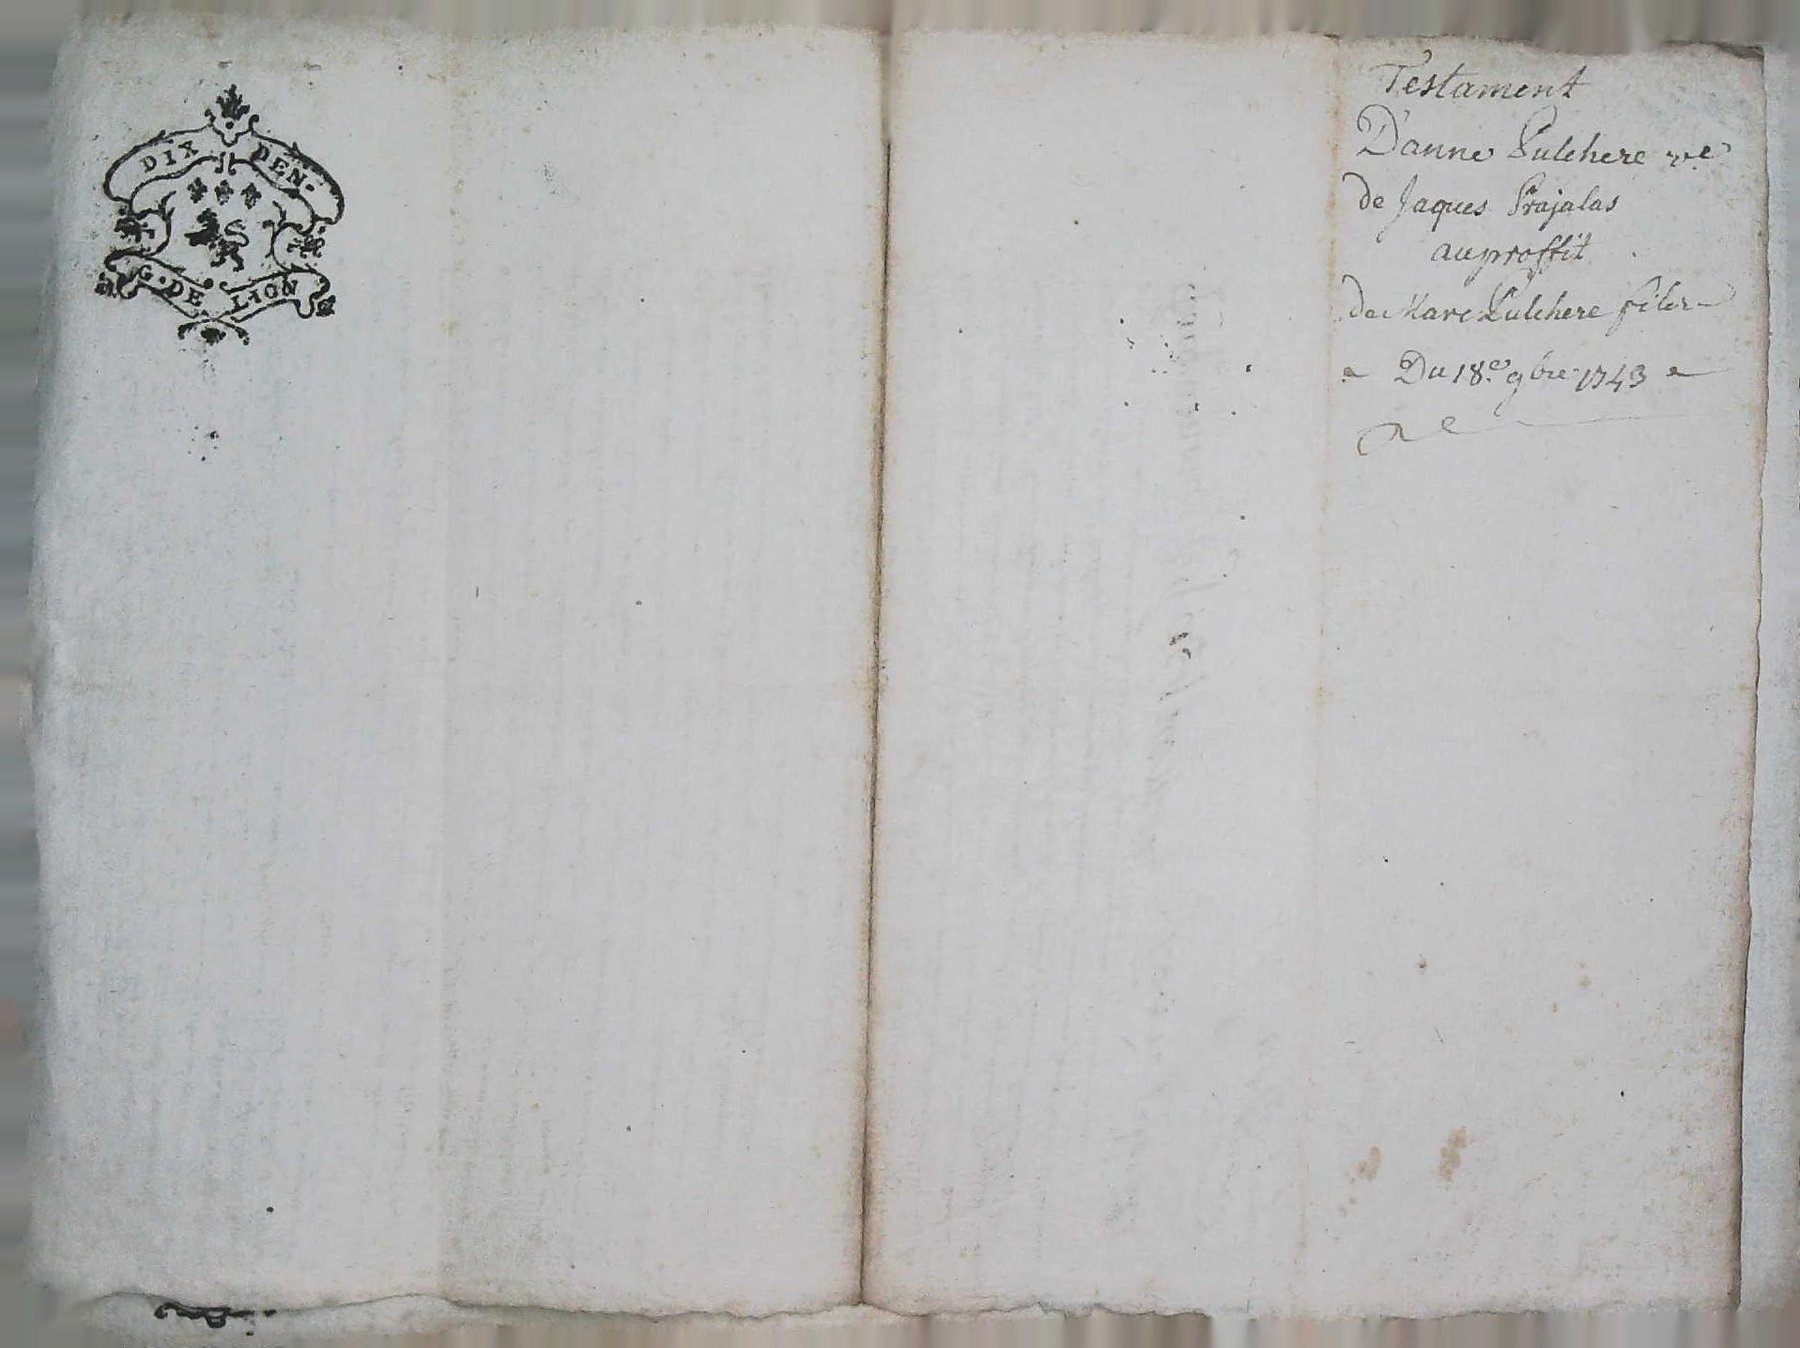 DIX DEN.
G. DE LION
Testament
D'anne Pulchere ve
de Jaques Prajalas
auproffit
de Marc Pulchere filer
Du 18.e 9bre 1743